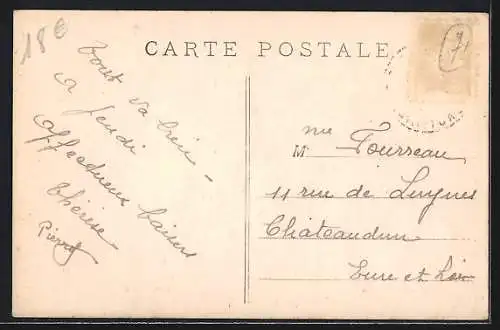 18€
CARTE POSTALE
71
Tout va bien -
a jeudi
affectueux baisers
Thérèse
Pierre
Mme Fourreau
11 rue de Luynes
Châteaudun
Eure et Loir